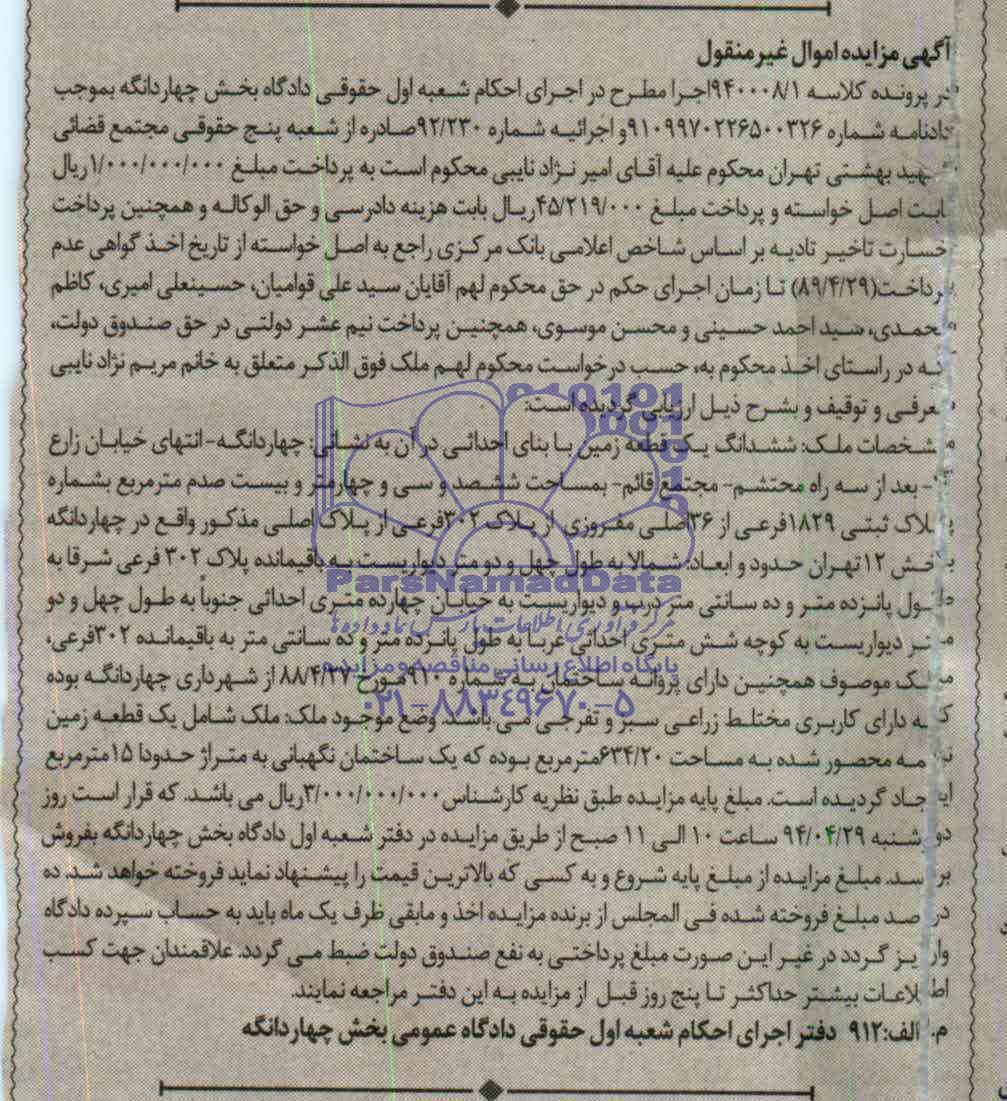 آگهی مزایده اموال غیرمنقول
در پرونده کلاسه ۹۴۰۰۰۸/۱اجرا مطرح در اجرای احکام شعبه اول حقوقی دادگاه بخش چهاردانگه بموجب
دادنامه شماره ۹۱۰۹۹۷۰۲۲۶۵۰۰۳۲۶و اجرائیه شماره ۹۲/۲۳۰صادره از شعبه پنج حقوقی مجتمع قضائی
شهید بهشتی تهران محکوم علیه آقای امیر نژاد نایبی محکوم است به پرداخت مبلغ ۱/۰۰۰/۰۰۰/۰۰۰ریال
بابت اصل خواسته و پرداخت مبلغ ۴۵/۲۱۹/۰۰۰ریال بابت هزینه دادرسی و حق الوکاله و همچنین پرداخت
خسارت تاخیر تادیه بر اساس شاخص اعلامی بانک مرکزی راجع به اصل خواسته از تاریخ اخذ گواهی عدم
پرداخت(۸۹/۴/۲۹) تا زمان اجرای حکم در حق محکوم لهم آقایان سید علی قوامیان، حسینعلی امیری، کاظم
محمدی، سید احمد حسینی و محسن موسوی، همچنین پرداخت نیم عشر دولتی در حق صندوق دولت،
که در راستای اخذ محکوم به، حسب درخواست محکوم لهم ملک فوق الذکر متعلق به خانم مریم نژاد نایبی
معرفی و توقیف و بشرح ذیل ارزیابی گردیده است:
مشخصات ملک: ششدانگ یک قطعه زمین با بنای احداثی در آن به نشانی: چهاردانگه-انتهای خیابان زارع
- بعد از سه راه محتشم- مجتمع قائم- بمساحت ششصد و سی و چهارمتر و بیست صدم مترمربع بشماره
پلاک ثبتی ۱۸۲۹فرعی از ۳۶اصلی مفروزی از پلاک ۳۰۲فرعی از پلاک اصلی مذکور واقع در چهاردانگه
بخش ۱۲ تهران حدود و ابعاد: شمالا به طول چهل و دو متر دیواریست به باقیمانده پلاک ۳۰۲ فرعی شرقا به
طول پانزده متر و ده سانتی متر درب و دیواریست به خیابان چهارده متری احداثی جنوباً به طول چهل و دو
متر دیواریست به کوچه شش متری احداثی غربا به طول پانزده متر و ده سانتی متر به باقیمانده ۳۰۲فرعی،
ملک موصوف همچنین دارای پروانه ساختمان به شماره ۹۱۰مورخ ۸۸/۴/۲۷ از شهرداری چهاردانگه بوده
که دارای کاربری مختلط زراعی سبز و تفرجی می باشد. وضع موجود ملک: ملک شامل یک قطعه زمین
نیمه محصور شده به مساحت ۶۳۴/۲۰مترمربع بوده که یک ساختمان نگهبانی به متراژ حدودا ۱۵مترمربع
ایجاد گردیده است. مبلغ پایه مزایده طبق نظریه کارشناس ۳/۰۰۰/۰۰۰/۰۰۰ریال می باشد. که قرار است روز
دوشنبه ۹۴/۰۴/۲۹ ساعت ۱۰ الی ۱۱ صبح از طریق مزایده در دفتر شعبه اول دادگاه بخش چهاردانگه بفروش
برسد. مبلغ مزایده از مبلغ پایه شروع و به کسی که بالاترین قیمت را پیشنهاد نماید فروخته خواهد شد. ده
درصد مبلغ فروخته شده فی المجلس از برنده مزایده اخذ و مابقی ظرف یک ماه باید به حساب سپرده دادگاه
واریز گردد در غیر این صورت مبلغ پرداختی به نفع صندوق دولت ضبط می گردد. علاقمندان جهت کسب
اطلاعات بیشتر حداکثر تا پنج روز قبل از مزایده به این دفتر مراجعه نمایند.
م. الف:۹۱۲ دفتر اجرای احکام شعبه اول حقوقی دادگاه عمومی بخش چهاردانگه
ParsNamadData
مرکز فرآوری اطلاعات پارس نماد داده ها
پایگاه اطلاع رسانی مناقصه و مزایده
۰۲۱-۸۸۳۴۹۶۷۰-۵